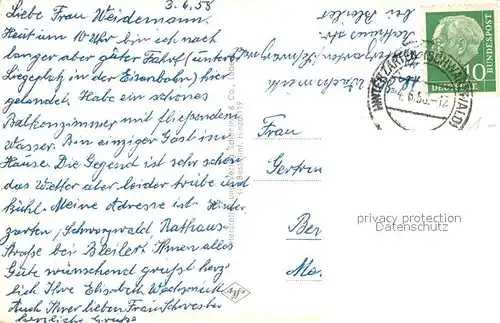 3.6.58
Liebe Frau Weidemann.
Heut um 10 Uhr bin ich nach
langer aber guter Fahrt (unterer
Liegeplatz in der Eisenbahn) hier
gelandet. Habe ein schönes
Balkonzimmer mit fließendem
Wasser. Bin einziger Gast im
Hause. Die Gegend ist sehr schön
das Wetter aber leider trübe und
kühl. Meine Adresse ist: Hinter
zarten, Schwarzwald, Rathaus-
Straße bei Bleiler. Ihnen alles
Gute wünschend grüßt herz
lich Ihre Elisabeth
Auch Ihrer lieben Frau Schwester
herzliche Grüße
bei Bleiler
Frau
Gertru
Ber
HINTERZARTEN (SCHWARZWALD)
4.6.58.-12
DEUTSCHE BUNDESPOST
10
privacy protection
Datenschutz